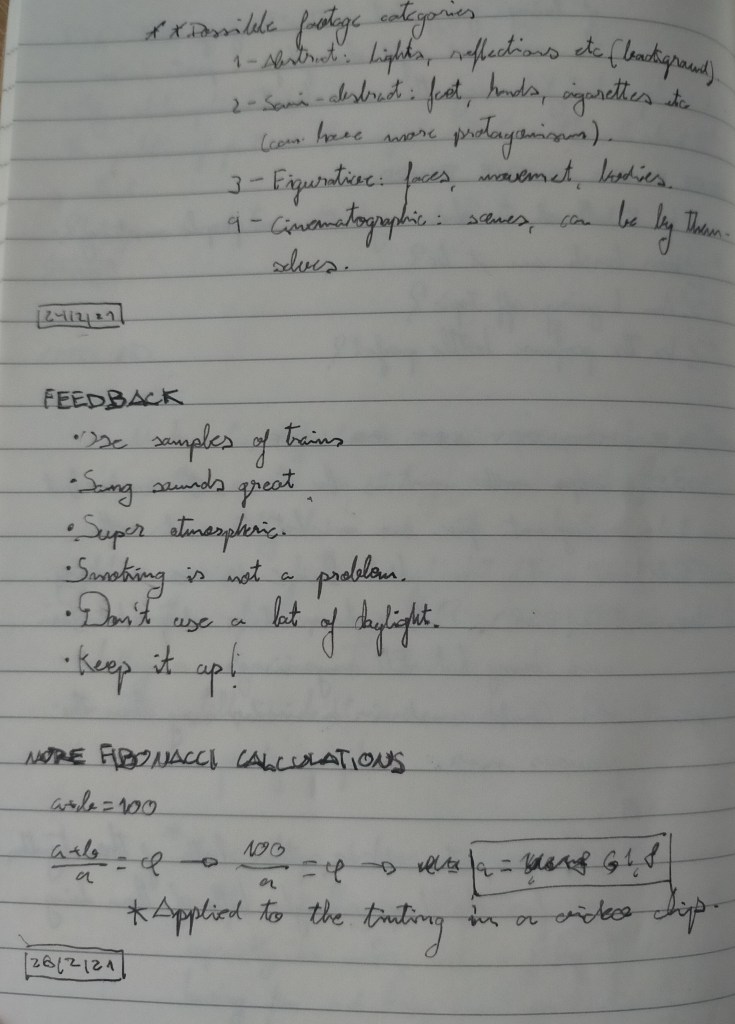 **Possible footage categories
1 - Abstract: lights, reflections etc (background)
2 - Semi-abstract: feet, hands, cigarettes etc
(can have more protagonism).
3 - Figurative: faces, movemet, bodies.
4 - Cinematographic: scenes, can be by them-
selves.
24/2/21
FEEDBACK
• Use samples of trains
• Song sounds great.
• Super atmospheric.
• Smoking is not a problem.
• Don't use a lot of daylight.
• Keep it up!
MORE FIBONACCI CALCULATIONS
a+b=100
a+b/a = φ → 100/a = φ → a = 61,8
* Applied to the tinting in a video clip.
28/2/21